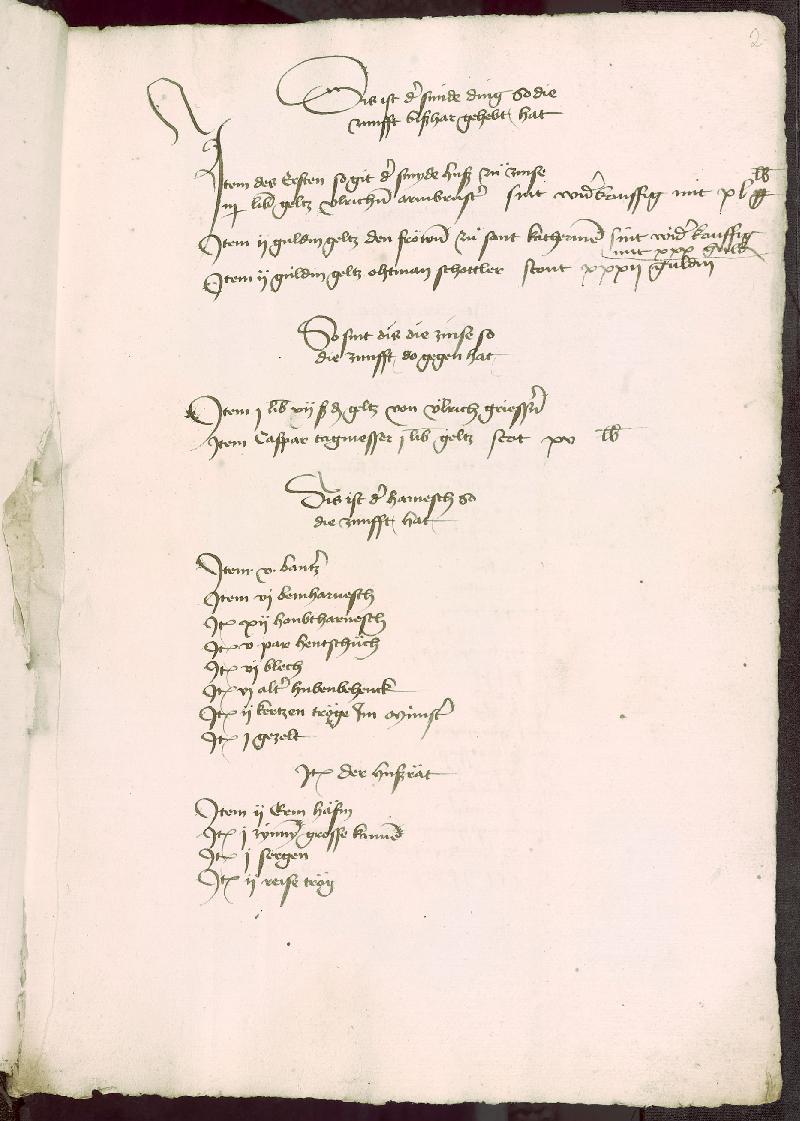 2
Dis ist der smide ding so die
zunfft bißhar gehebt hat
Item des Ersten so git der smyde huß zů zinse
iiij lib geltz Ůlrichen armbruster sint widerkouffig mit xl lb
Item ij guldin geltz den frowen zů sant katherinen sint widerkouffig
mit xxx guld
Item ij guldin geltz ohtman schottler stont xxxij guldin
So sint dis die zinse so
die zunfft do gegen hat
Item j lib vij ß d geltz von Ůlrich
Item Caspar tagmesser j lib geltz stot xv lb
Dis ist der harnesch so
die zunfft hat
Item v bantzer
Item vj beinharnesch
Itm xij houbtharnesch
Itm v par hentschůch
Itm vj blech
Itm vj alter hubenbehenck
Itm ij kertzen tröge Im Münster
Itm j gezelt
Itm der hußrät
Item ij Erin häfin
Itm j zynnen grosse kannen
Itm j sergen
Itm ij reise trög